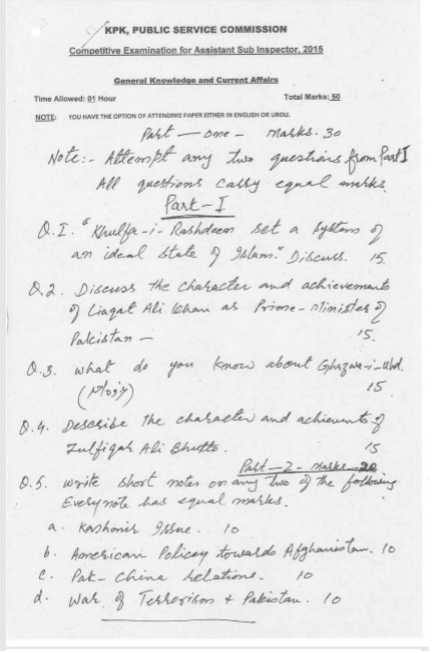 KPK, PUBLIC SERVICE COMMISSION
Competitive Examination for Assistant Sub Inspector, 2015
General Knowledge and Current Affairs
Time Allowed: 01 Hour Total Marks: 50
NOTE: YOU HAVE THE OPTION OF ATTENDING PAPER EITHER IN ENGLISH OR URDU.
Part — one - marks. 30
Note:- Attempt any two questions from Part I
All questions carry equal marks.
Part-I
Q.I. "Khulfa-i-Rashdeen set a System of
an ideal state of Islam." Discuss. 15
Q.2. Discuss the character and achievements
of Liaqat Ali Khan as Prime-Minister of
Pakistan — 15.
Q.3. what do you know about Ghazwa-i-Uhd.
15
Q.4. Describe The character and achievements of
Zulfiqar Ali Bhutto. 15
Part-2- marks 20
Q.5. write short notes on any two of the following
Every note has equal marks.
a. Kashmir Issue. 10
b. American Policy towards Afghanistan. 10
c. Pak-China relations. 10
d. War of Terrorism + Pakistan. 10